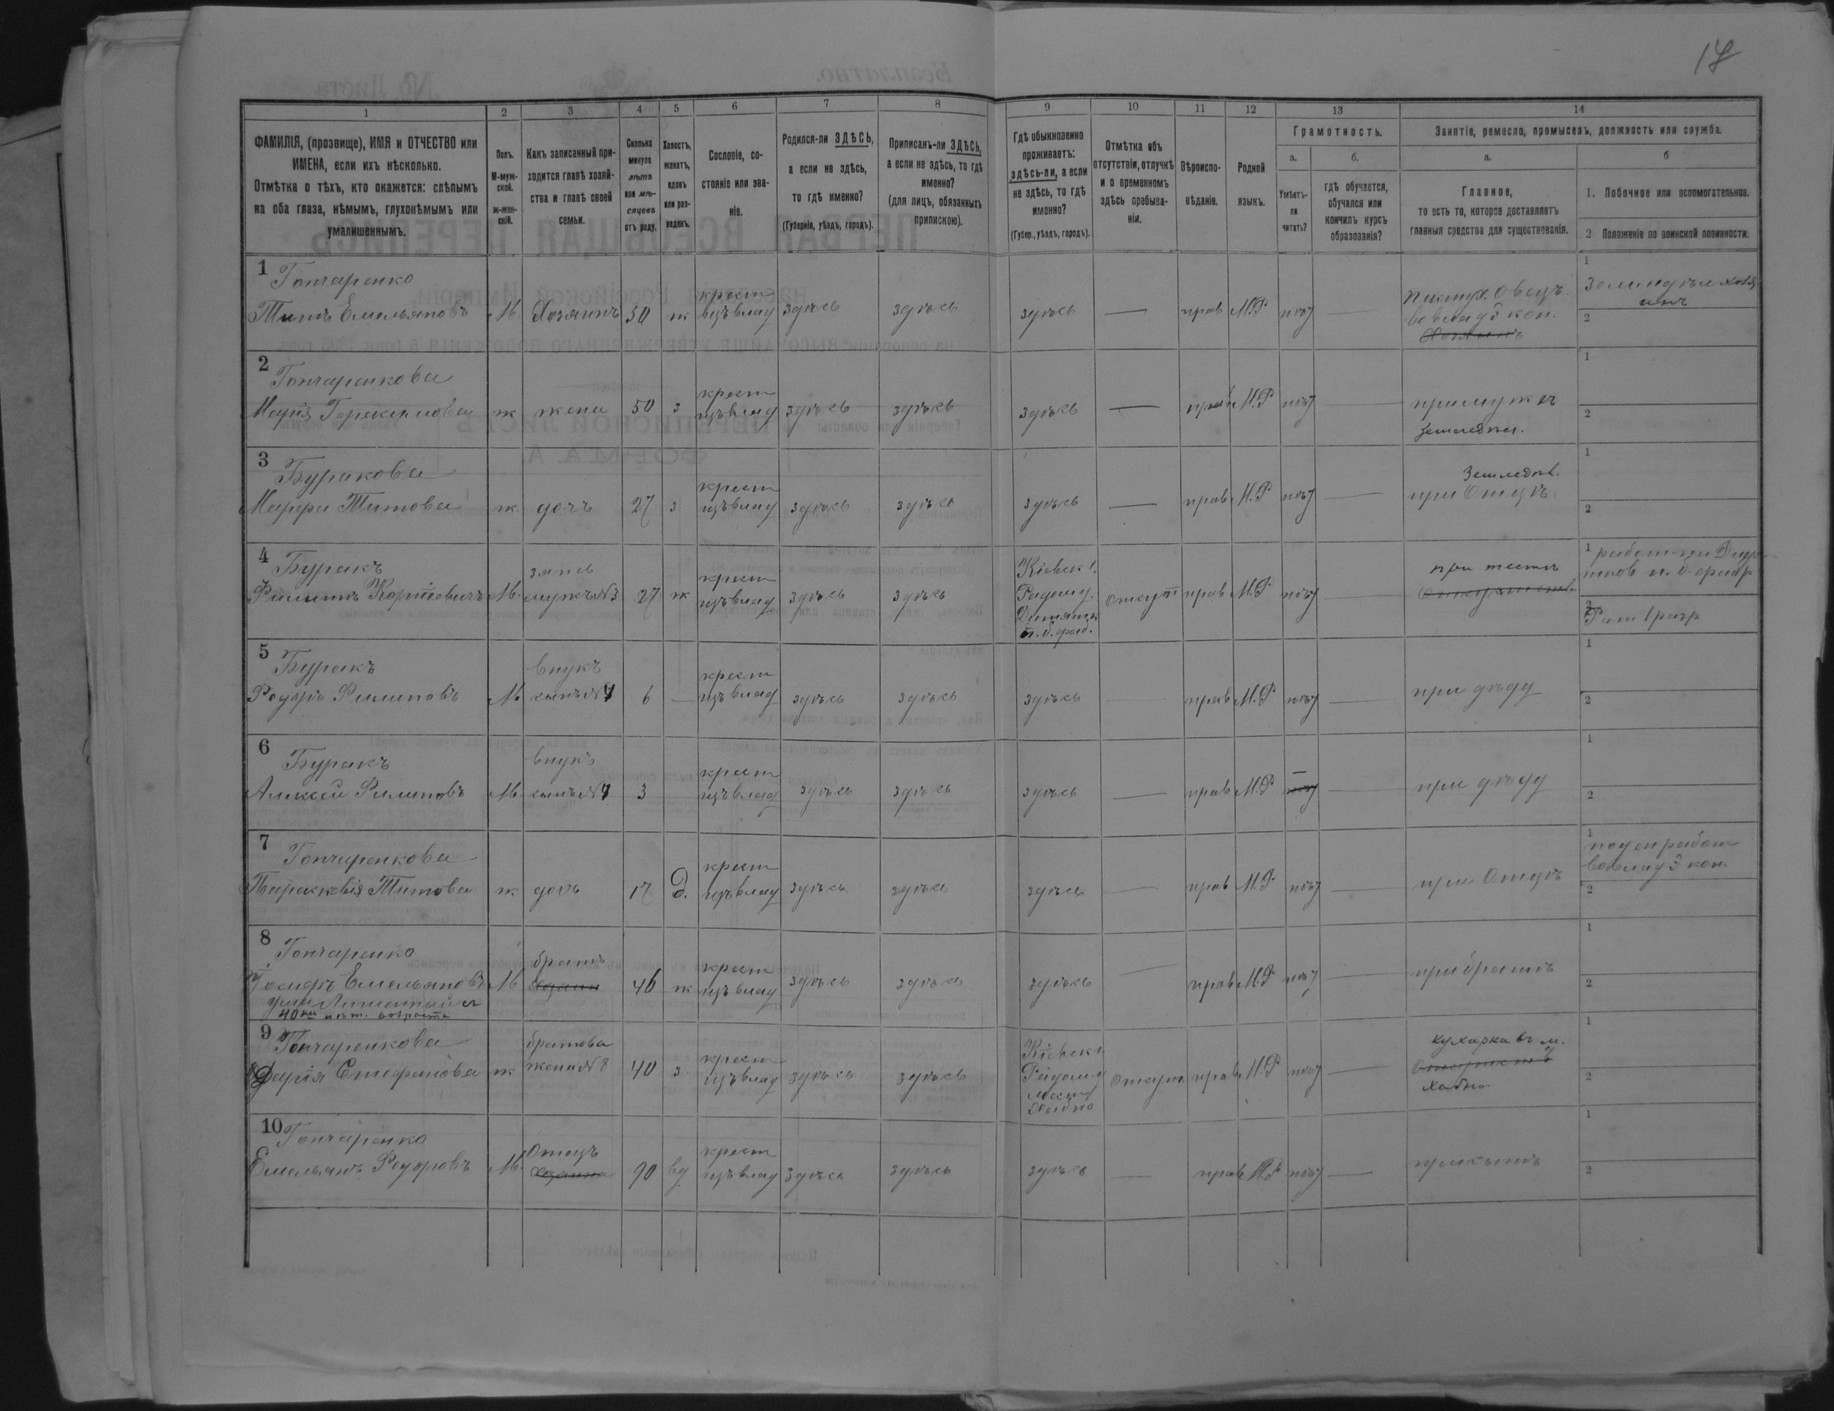 17
1 2 3 4 5 6 7 8 9 10 11 12 13 14
ФАМИЛІЯ, (прозвище), ИМЯ и ОТЧЕСТВО или
ИМЕНА, если ихъ нѣсколько.
Отмѣтка о тѣхъ, кто окажется: слѣпымъ
на оба глаза, нѣмымъ, глухонѣмымъ или
умалишеннымъ.
Полъ.
М-муж-
ской.
Ж-жен-
скій.
Какъ записанный при-
ходится главѣ хозяй-
ства и главѣ своей
семьи.
Сколько
минуло
лѣтъ
или мѣ-
сяцевъ
отъ роду.
Холостъ,
женатъ,
вдовъ
или раз-
веденъ.
Сословіе, со-
стояніе или зва-
ніе.
Родился-ли ЗДѢСЬ,
а если не здѣсь,
то гдѣ именно?
(Губернія, уѣздъ, городъ).
Приписанъ-ли ЗДѢСЬ,
а если не здѣсь, то гдѣ
именно?
(для лицъ, обязанныхъ
припискою).
Гдѣ обыкновенно
проживаетъ:
здѣсь-ли, а если
не здѣсь, то гдѣ
именно?
(Губер., уѣздъ, городъ).
Отмѣтка объ
отсутствіи, отлучкѣ
и о временномъ
здѣсь пребыва-
ніи.
Вѣроиспо-
вѣданіе.
Родной
языкъ.
Грамотность.
а.
Умѣетъ-
ли
читать?
б.
гдѣ обучается,
обучался или
кончилъ курсъ
образованія?
Занятіе, ремесло, промыселъ, должность или служба.
а.
Главное,
то есть то, которое доставляетъ
главныя средства для существованія.
б
1. Побочное или вспомогательное.
2 Положеніе по воинской повинности.
1 Гончаренко
Титъ Емельяновъ М. Хозяинъ 50 ж крест изъ влад здѣсь здѣсь здѣсь — прав М.Р нѣт — Пастух Овецъ
Хозяинъ
1
2
2 Гончаренкова
Марія Герасимова ж жена 50 з крест изъ влад здѣсь здѣсь здѣсь — прав М.Р нѣт — при мужѣ
земледѣл.
1
2
3 Буракова
Марфа Титова ж дочь 27 з крест изъ влад здѣсь здѣсь здѣсь — прав М.Р нѣт — Земледѣл.
при Отцѣ
1
2
4 Буракъ
Филипъ Корнѣевичъ М. зять
мужъ №3 27 ж крест изъ влад здѣсь здѣсь Кіевск г.
Радомы. прав М.Р нѣт при тестѣ
1
2
5 Буракъ
Федоръ Филиповъ М внукъ
сынъ №4 6 — крест изъ влад здѣсь здѣсь здѣсь — прав М.Р нѣт — при дѣду
1
2
6 Буракъ
Алексѣй Филиповъ М внукъ
сынъ №4 3 крест изъ влад здѣсь здѣсь здѣсь — прав М.Р — при дѣду
1
2
7 Гончаренкова
Параскевія Титова ж дочь 17 д. крест изъ влад здѣсь здѣсь здѣсь — прав М.Р нѣт — при Отцѣ
1
2
8 Гончаренко
Емельяновъ М братъ 46 ж крест изъ влад здѣсь здѣсь здѣсь — прав М.Р нѣт — при братѣ
1
2
9 Гончаренкова
Дарія Стефанова ж братова
жена №8 40 з крест изъ влад здѣсь здѣсь Кіевск г
Радомы прав М.Р нѣт — кухарка въ м.
Хабно
1
2
10 Гончаренко
Емельянъ Федоровъ М. Отецъ 90 вд крест изъ влад здѣсь здѣсь здѣсь — прав М.Р нѣт — при сынѣ
1
2